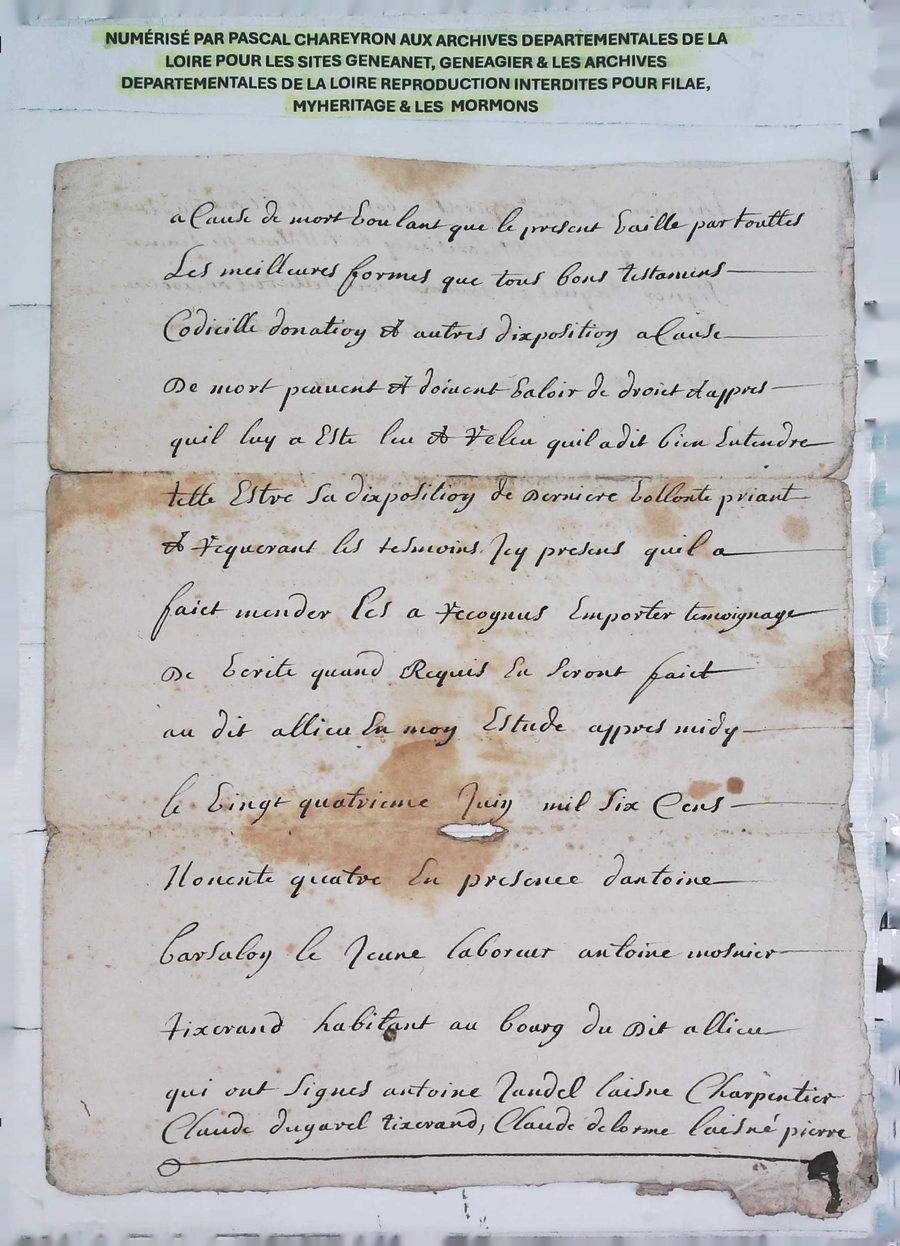 NUMÉRISÉ PAR PASCAL CHAREYRON AUX ARCHIVES DEPARTEMENTALES DE LA
LOIRE POUR LES SITES GENEANET, GENEAGIER & LES ARCHIVES
DEPARTEMENTALES DE LA LOIRE REPRODUCTION INTERDITES POUR FILAE,
MYHERITAGE & LES MORMONS
a Cause de mort voulant que le present vaille par touttes
Les meilleures formes que tous bons testamens
Codicille donation et autres dixposition a Cause
De mort peuvent et doivent valoir de droict et appres
quil luy a Este leu et releu quil a dit bien Entendre
telle Estre sa dixposition de Derniere vollonte priant
et requerant les tesmoins Icy presens quil a
faict mender les a recognus Emporter temoignage
De verite quand Requis En seront faict
au dit allieu En moy Estude appres midy
le vingt quatrieme Juin mil six Cens
Nonente quatre En presence dantoine
barsaloy le Jeune laboreur antoine mosnier
tixerand habitant au bourg du Dit allieu
qui ont signes antoine Jandel laisne Charpentier
Claude dugarel tixerand, Claude delorme laisné pierre